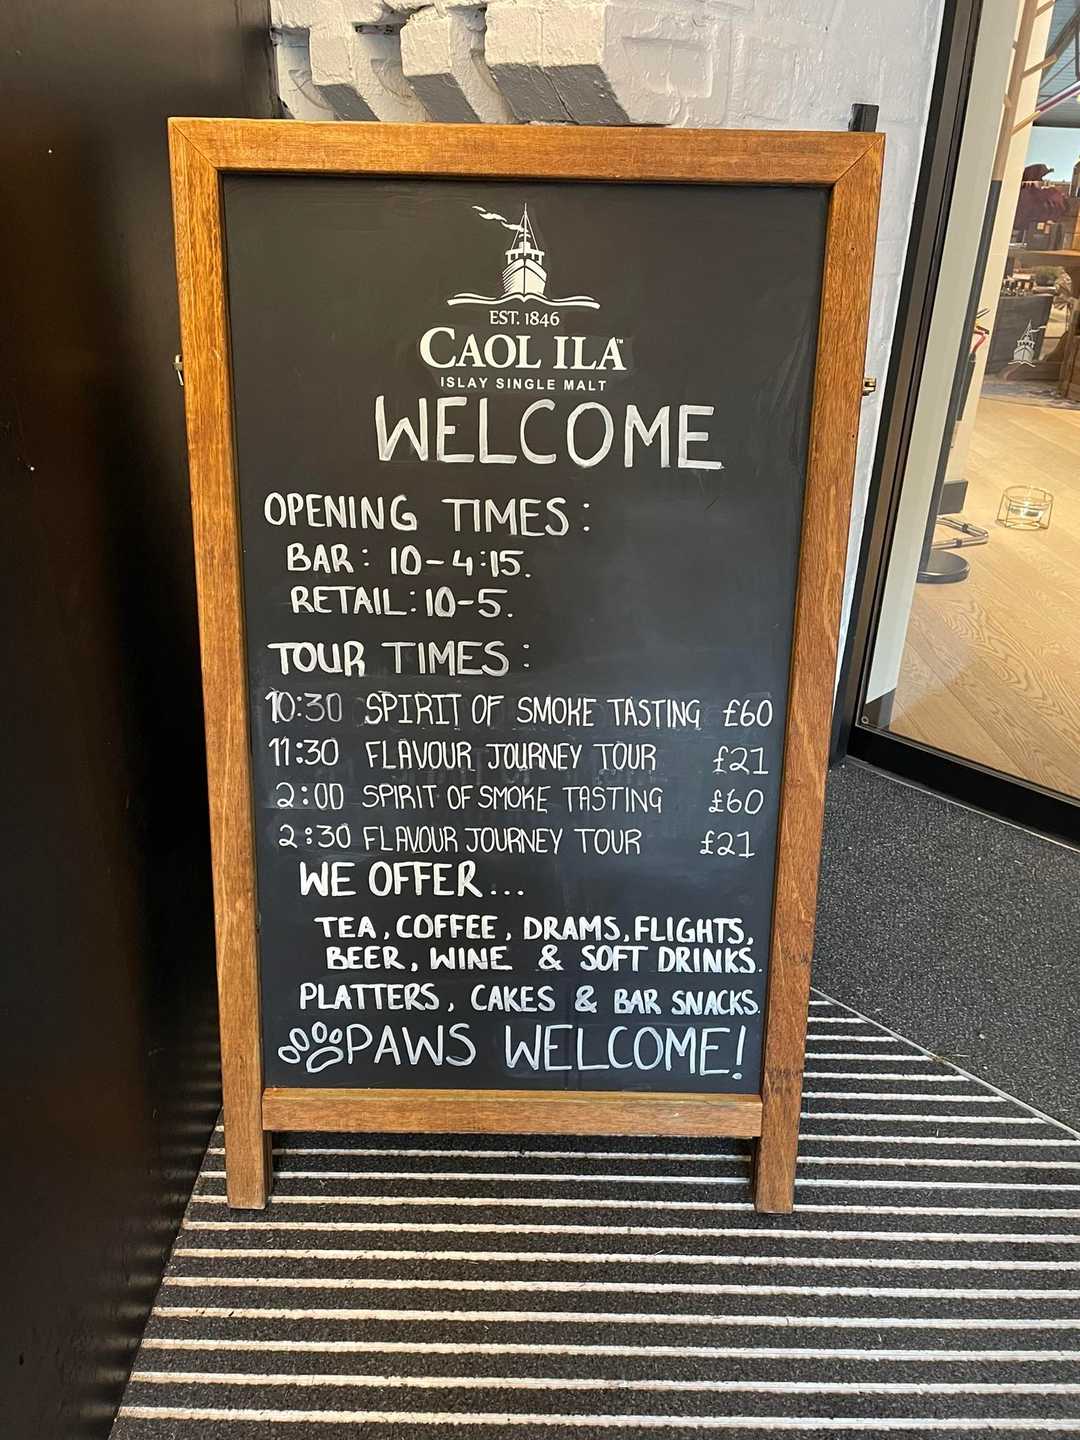 EST. 1846
CAOL ILA™
ISLAY SINGLE MALT
WELCOME
OPENING TIMES:
BAR: 10-4:15.
RETAIL: 10-5.
TOUR TIMES:
10:30 SPIRIT OF SMOKE TASTING £60
11:30 FLAVOUR JOURNEY TOUR £21
2:00 SPIRIT OF SMOKE TASTING £60
2:30 FLAVOUR JOURNEY TOUR £21
WE OFFER...
TEA, COFFEE, DRAMS, FLIGHTS,
BEER, WINE & SOFT DRINKS.
PLATTERS, CAKES & BAR SNACKS.
PAWS WELCOME!